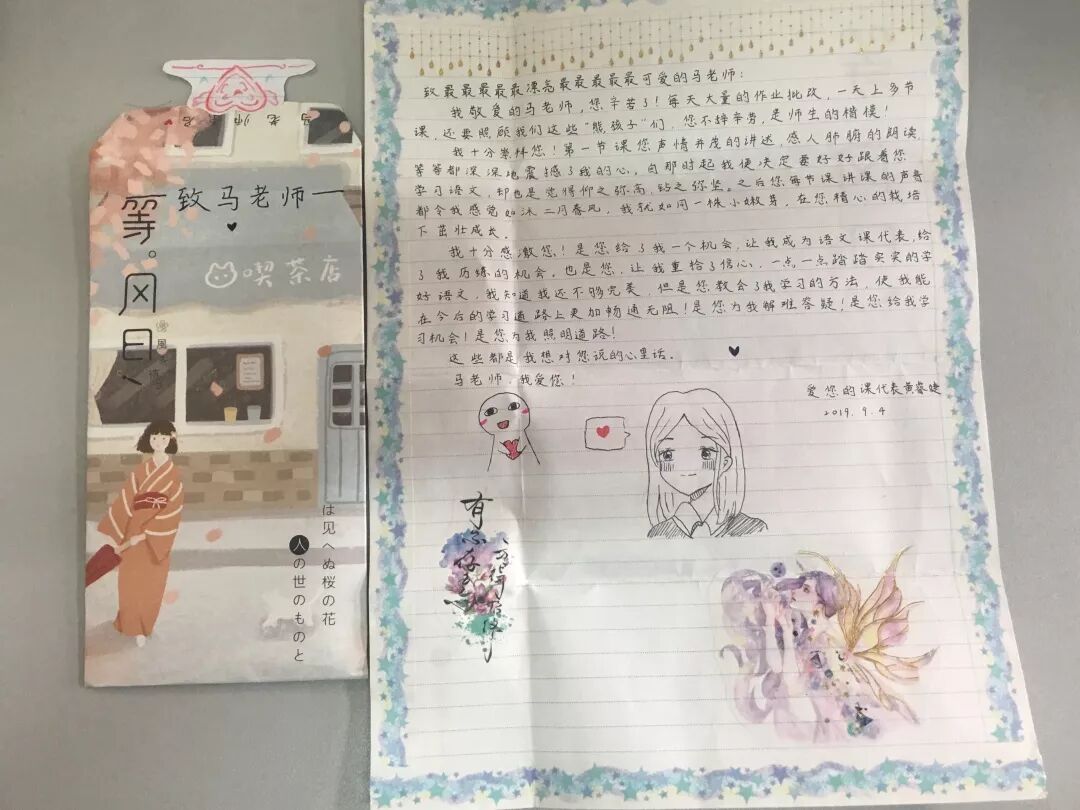 马老师 启
致马老师
等。风日
喫茶店
は见へぬ桜の花
人の世のものと
致最最最最最漂亮最最最最最可爱的马老师：
我敬爱的马老师，您辛苦了！每天大量的作业批改，一天上多节
课，还要照顾我们这些“熊孩子”们，您不辞辛劳，是师生的楷模！
我十分崇拜您！第一节课您声情并茂的讲述，感人肺腑的朗读，
等等都深深地震撼了我的心，自那时起我便决定要好好跟着您
学习语文，却也是觉得仰之弥高，钻之弥坚。之后您每节课讲课的声音
都令我感觉如沐二月春风，我就如同一株小嫩芽，在您精心的栽培
下茁壮成长。
我十分感激您！是您给了我一个机会，让我成为语文课代表，给
了我历练的机会。也是您，让我重拾了信心，一点一点踏踏实实的学
好语文，我知道我还不够完美，但是您教会了我学习的方法，使我能
在今后的学习道路上更加畅通无阻！是您为我解难答疑！是您给我学
习机会！是您为我照明道路！
这些都是我想对您说的心里话。
马老师，我爱您！
爱您的课代表黄睿婕
2019.9.4